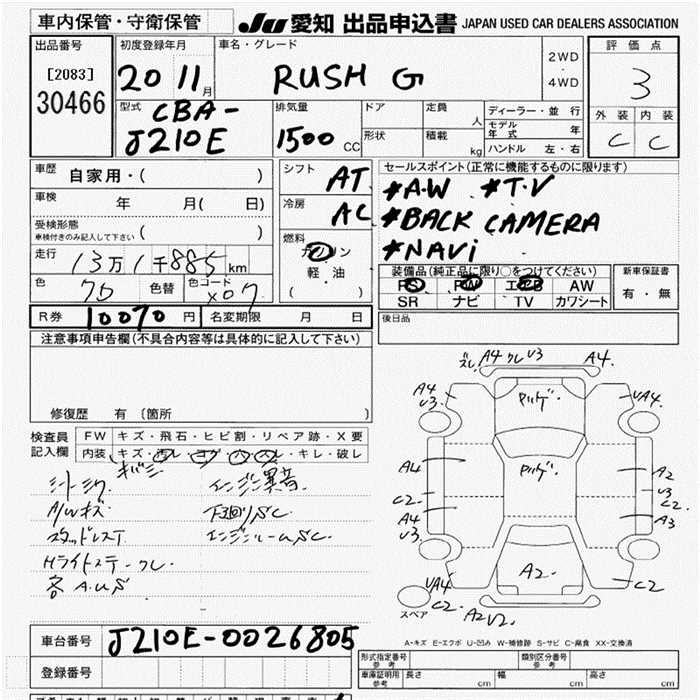 車内保管・守衛保管
JU 愛知 出品申込書 JAPAN USED CAR DEALERS ASSOCIATION
出品番号
[2083]
30466
初度登録年月
20 11月
車名・グレード
RUSH G
2WD
・
4WD
評価点
3
外装 内装
C C
型式 CBA-
J210E
排気量
1500 CC
ドア
形状
定員 人
積載 kg
ディーラー・並行
モデル年式 年
ハンドル 左・右
車歴 自家用・( )
車検 年 月( 日)
受検形態
車検付きのみ記入して下さい ( )
走行 13万1千885km
色 色替 色コード
X07
シフト AT
冷房 AC
燃料
ガソリン
軽油
( )
セールスポイント(正常に機能するものに限ります)
*A・W *T・V
*BACK CAMERA
*NAVi
装備品(純正品に限り○をつけてください)
PS PW エアB AW
SR ナビ TV カワシート
新車保証書
有・無
R券 10070円 名変期限 月 日
後日品
注意事項申告欄(不具合内容等は具体的に記入して下さい)
修復歴 有 〔箇所 〕
検査員記入欄
FW キズ・飛石・ヒビ割・リペア跡・X要
内装 キズ・汚レ・コゲ・ハハレ・キレ・破レ
A/Wキズ エンジン異音
下廻りSC
エンジンルームSC.
スタッドレスT
Hライトステークレ
各A.U.S
ズレ A4 クレ V3 A4.
A4
V3.
UA4
V3.
A4
C2
A4
V3.
A2
V3
C2.
A3
A2.
UA4
C2.
A2V2.
C2
スペア
A-キズ E-エクボ U-凹み W-補修跡 S-サビ C-腐食 XX-交換済
車台番号 J210E-0026805
登録番号
形式指定番号
参考
類別区分番号
参考
車庫証明用
参考
長さ cm 幅 cm 高さ cm